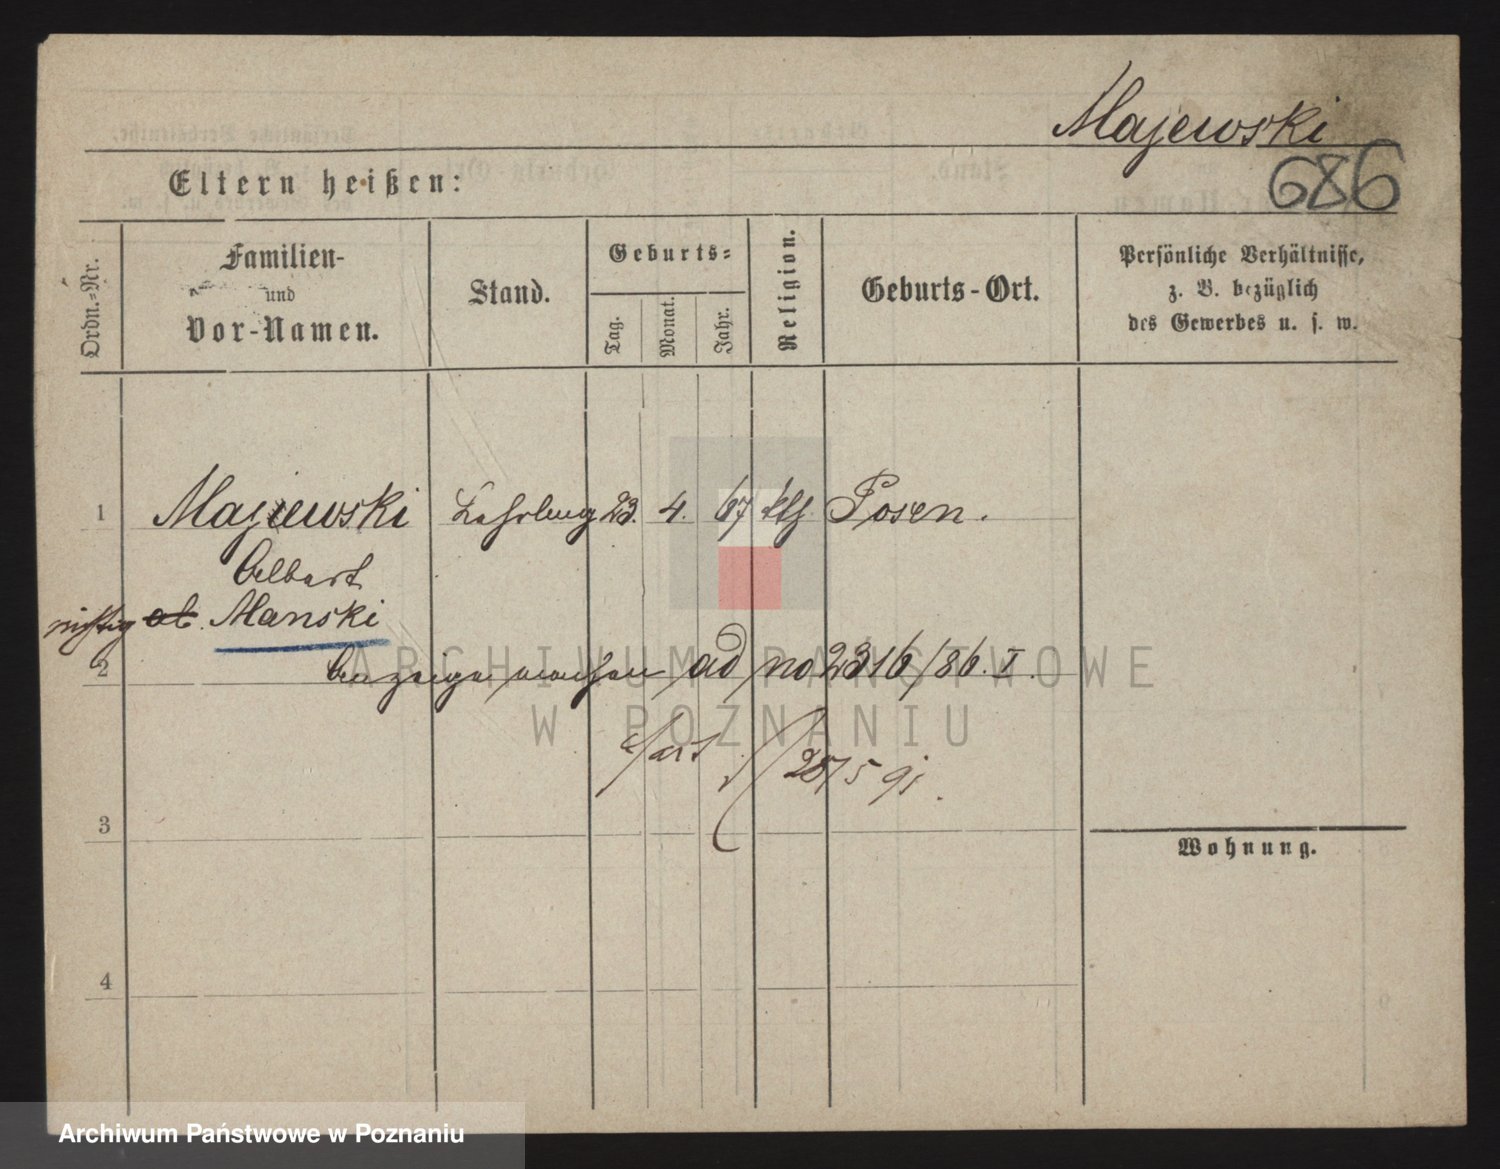 Majewski
686
Eltern heißen:
Ordn.-Nr.
Familien-
und
Vor-Namen.
Stand.
Geburts-
Tag.
Monat.
Jahr.
Religion.
Geburts-Ort.
Persönliche Verhältnisse,
z. B. bezüglich
des Gewerbes u. s. w.
1 Majewski Lehrling 23. 4. 67 kth Posen.
Albert
richtig Manski
2 Anzeige machen ad no 2316/86. I.
ARCHIWUM PAŃSTWOWE
W POZNANIU
28/5 91.
3
Wohnung.
4
Archiwum Państwowe w Poznaniu